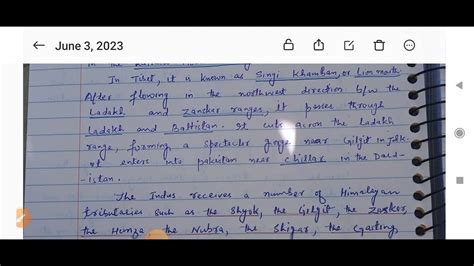 June 3, 2023
in the
In Tibet, it is known as Singi Khamban, or Lion mouth.
After flowing in the northwest direction b/w the
Ladakh and Zanskar ranges, it passes through
Ladakh and Baltistan. It cuts across the Ladakh
range, forming a spectacular gorge near Gilgit in J&K.
It enters into pakistan near chillar in the Dard-
-istan.
The Indus receives a number of Himalayan
tributaries such as the Shyok, the Gilgit, the Zaskar,
the Hunza the Nubra, the Shigar, the Gasting,